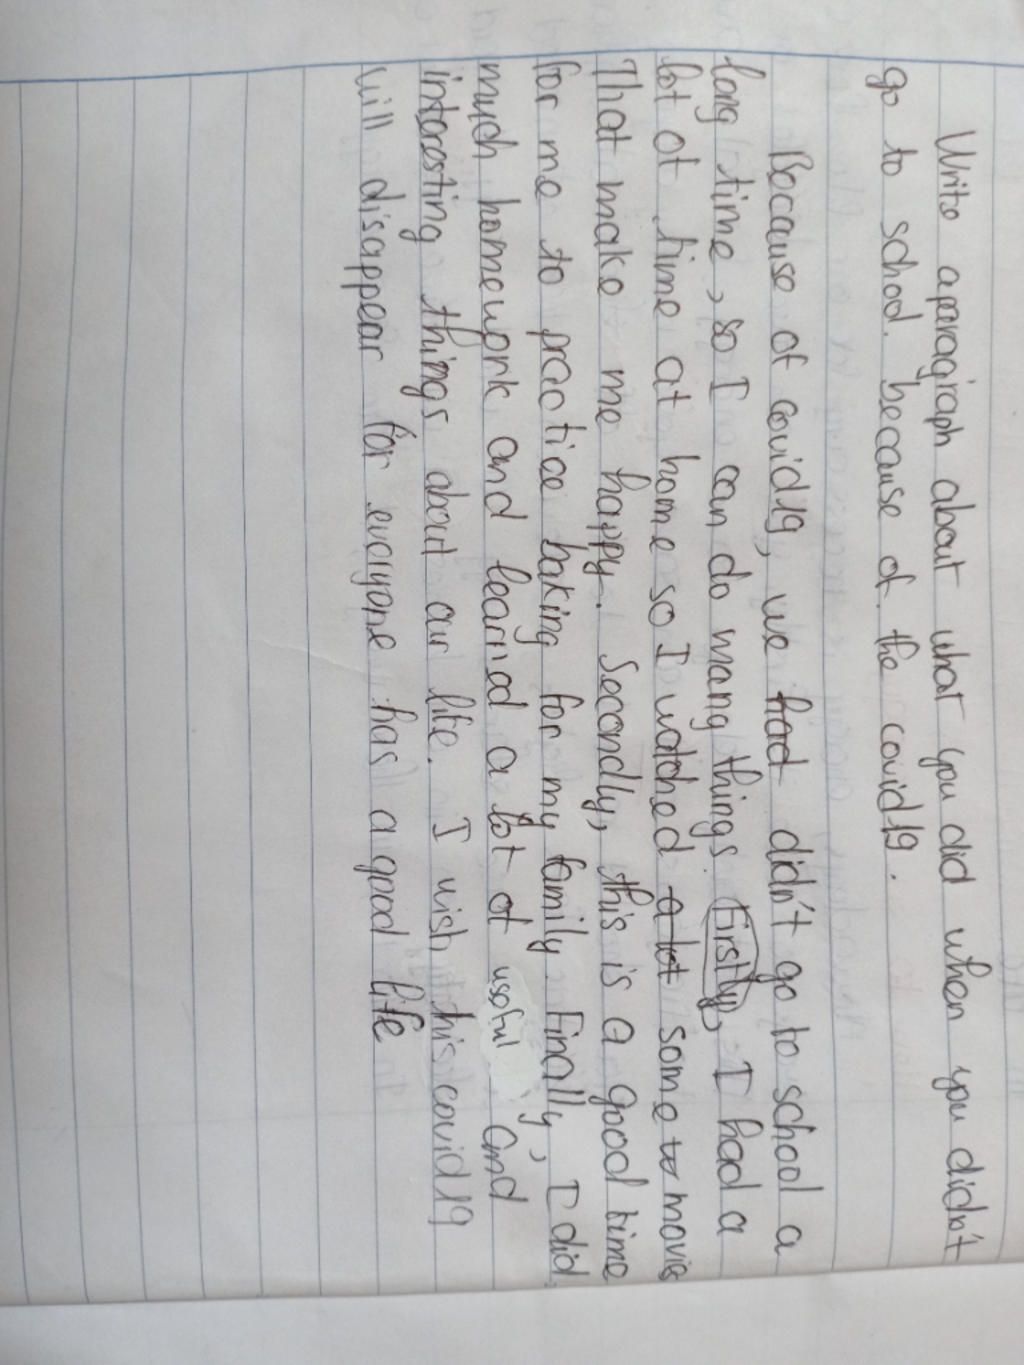 Write aparagraph about what you did when you didn't
go to school. because of the covid19.
Because of covid19, we had didn't go to school a
long time, so I can do many things. Firstly, I had a
lot of time at home so I watched a lot some to movie
That make me happy. Secondly, this is a good time
for me to practice baking for my family. Finally, I did
much homework and learned a lot of useful and
interesting things about our life. I wish this covid19
will disappear for everyone has a good life